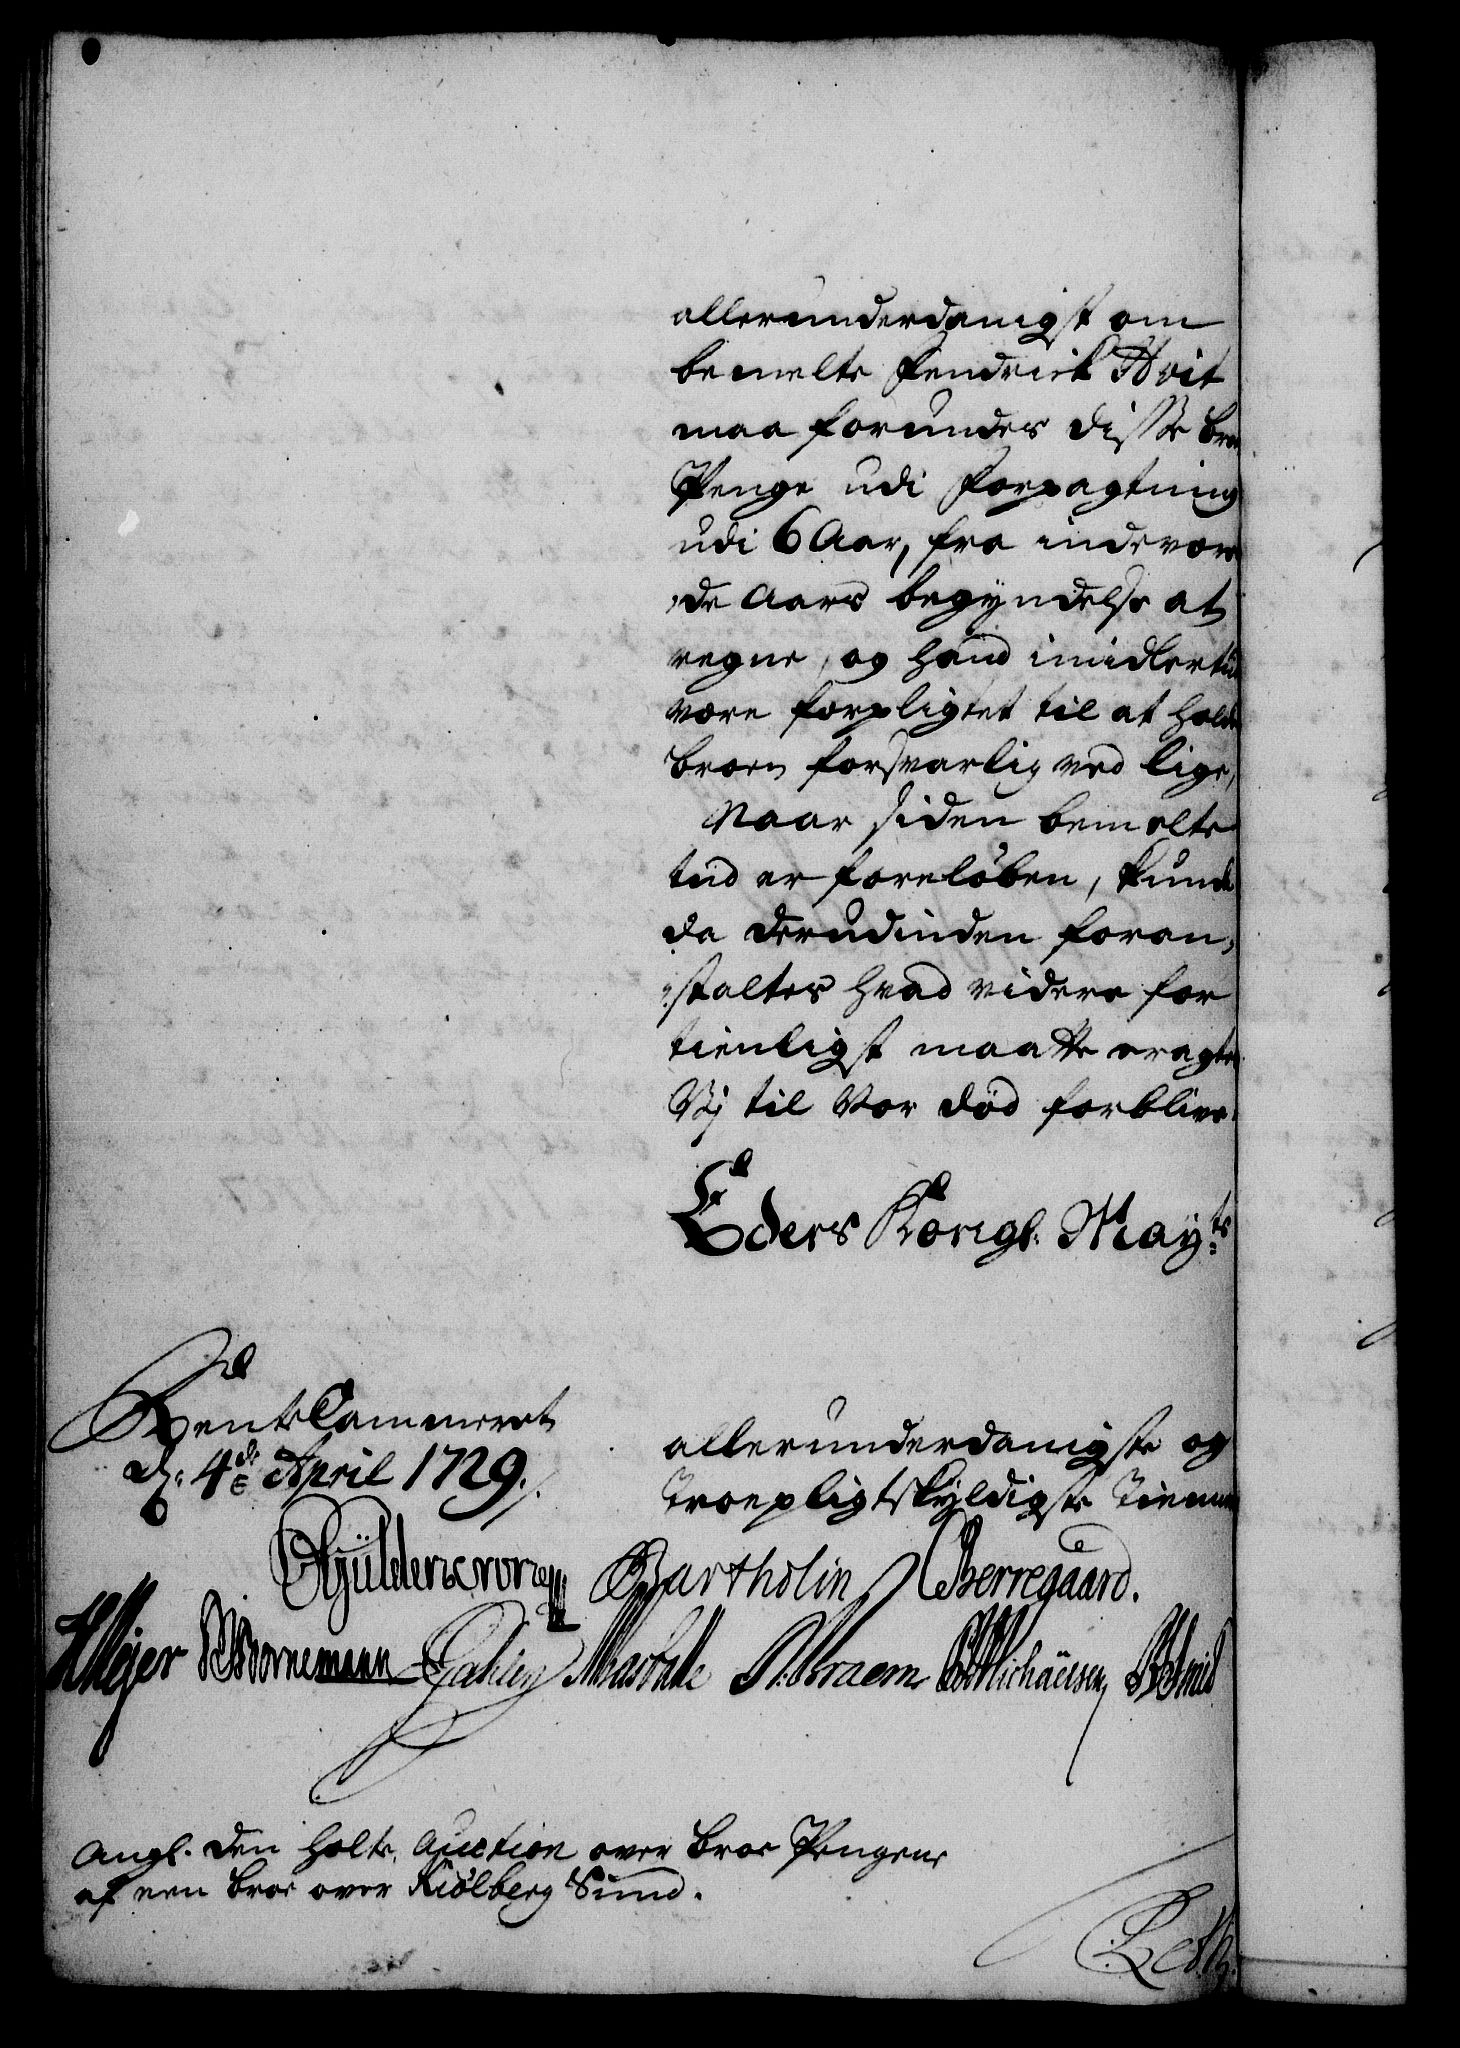 allerunderdanigst om
bemelte Fendrick Hvit
maa forundes disse Broe
Penge udi Forpagtning
udi 6 Aar, fra indeværen
de Aars begyndelse at
regne, og hand imidlertiid
være forpligtet til at holde
broen forsvarlig ved lige,
Naar siden bemelte
tiid er foreløben, kunde
da derudinden foran,
staltes hvad videre for
tienligst maatte eragtes
Vj til Vor død forblive.
Eders Königl. Mayts
Rente Cammeret
d. 4de April 1729.
allerunderdanigste og
Troepligtskyldigste Tienere
Gÿldencrone Bartholin CBerregaard.
HMejer Bornemann Braem
Angl. den holte Auction over Broe Pengene
af een broe over Kiölberg Sund.